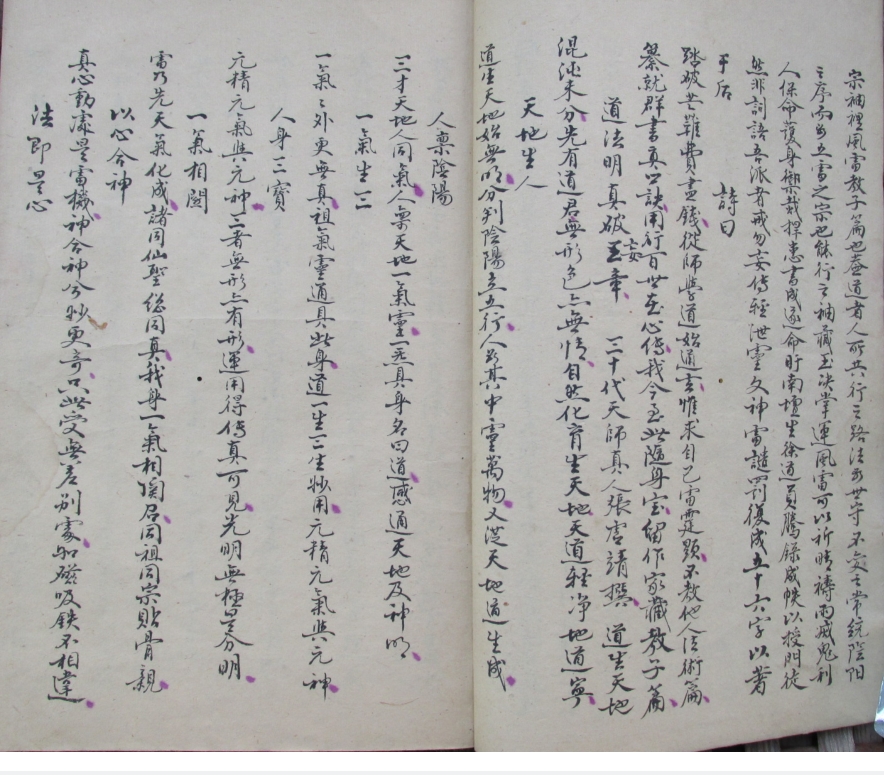 宗袖裡風雷教子篇也蓋道者人所共行之路法乃世守不変之常統陰陽
之序而为五雷之宗也能行之袖藏玉决掌運風雷可以祈晴祷雨滅鬼利
人保命護身禦烖捍患書成遂命盱南壇生徐道員騰録成帙以授門徒
然非詞語吾派者戒勿妄傳輕泄靈文神雷譴罰復成五十六字以著
于后　詩曰
踏破芒鞋費尽錢從師學道始通玄惟求自己雷霆顕不教他人法術篇
纂就群書真口訣用行百世至心傳我今至此隨身宝留作家藏教子篇
道法明真破妄章　三十代天師真人張虚靖撰　道生天地
混沌未分先有道君無形色亦無情自然化育生天地天道輕净地道寧
天地生人
道生天地始無明分判陰陽立五行人於其中靈萬物又從天地道生成
人禀陰陽
三才天地人同氣人禀天地一氣靈一炁具身名曰道感通天地及神明
一氣生三
一氣之外更無真祖氣靈通具此身道一生二二生妙用元精元氣與元神
人身三寳
元精元氣與元神三者無形亦有形運用得傳真可見光明無極是分明
一氣相関
雷乃先天氣化成諸司仙聖総同真我身一氣相関召同祖同宗貼骨親
以心合神
真心動處是雷機神合神兮妙更竒只此受無差别處如磁吸鉄不相違
法即是心